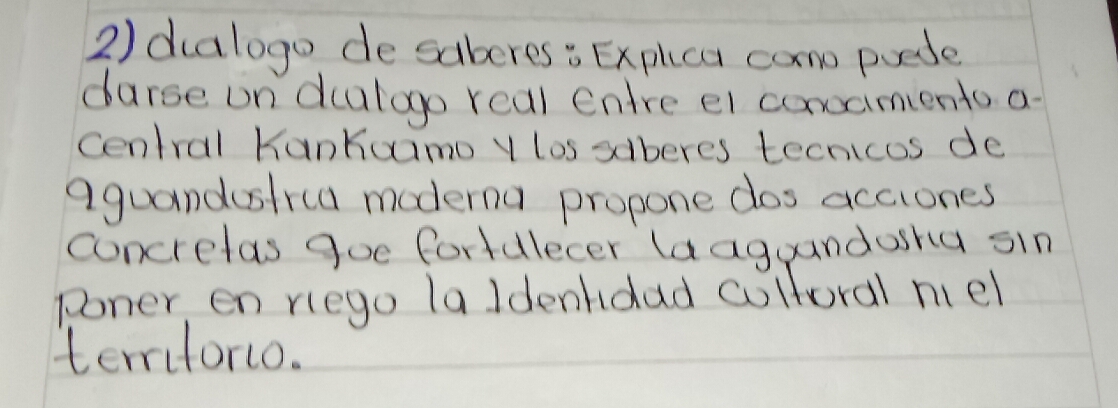 2) dialogo de saberes: Explica como puede
darse un dialogo real entre el conocimiento a-
central Kankuamo y los saberes tecnicos de
aguandustria moderna propone dos acciones
concretas que fortallecer la aguandustria sin
poner en riego la Identidad cultural ni el
territorio.